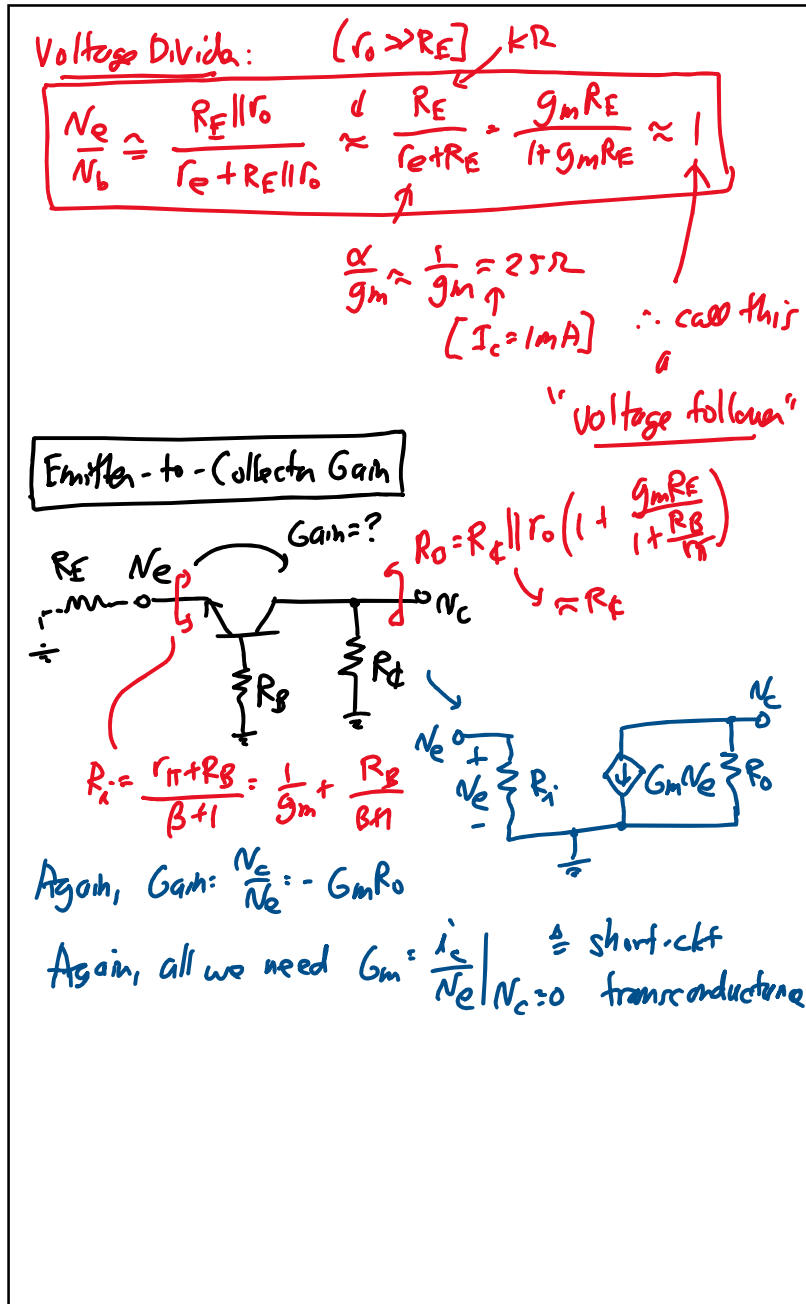 Voltage Divider: [r₀ ≫ R_E] kΩ
N_e/N_b ≅ R_E||r₀ / (r_e + R_E||r₀) ≈ R_E / (r_e + R_E) = g_m R_E / (1 + g_m R_E) ≈ 1
α/g_m ≈ 1/g_m = 25Ω
[I_c = 1mA]
∴ call this
a
"voltage follower"
Emitter-to-Collector Gain
Gain=?
R_O = R_C || r₀ (1 + g_m R_E / (1 + R_B/r_π))
≈ R_C
R_E N_e N_c
R_B R_C
R_i = (r_π + R_B) / (β+1) = 1/g_m + R_B/(β+1)
N_e + N_e − R_i G_m N_e R_o N_c
Again, Gain = N_c/N_e = - G_m R_o
Again, all we need G_m = i_c/N_e |N_c=0 ≜ short-ckt
transconductance